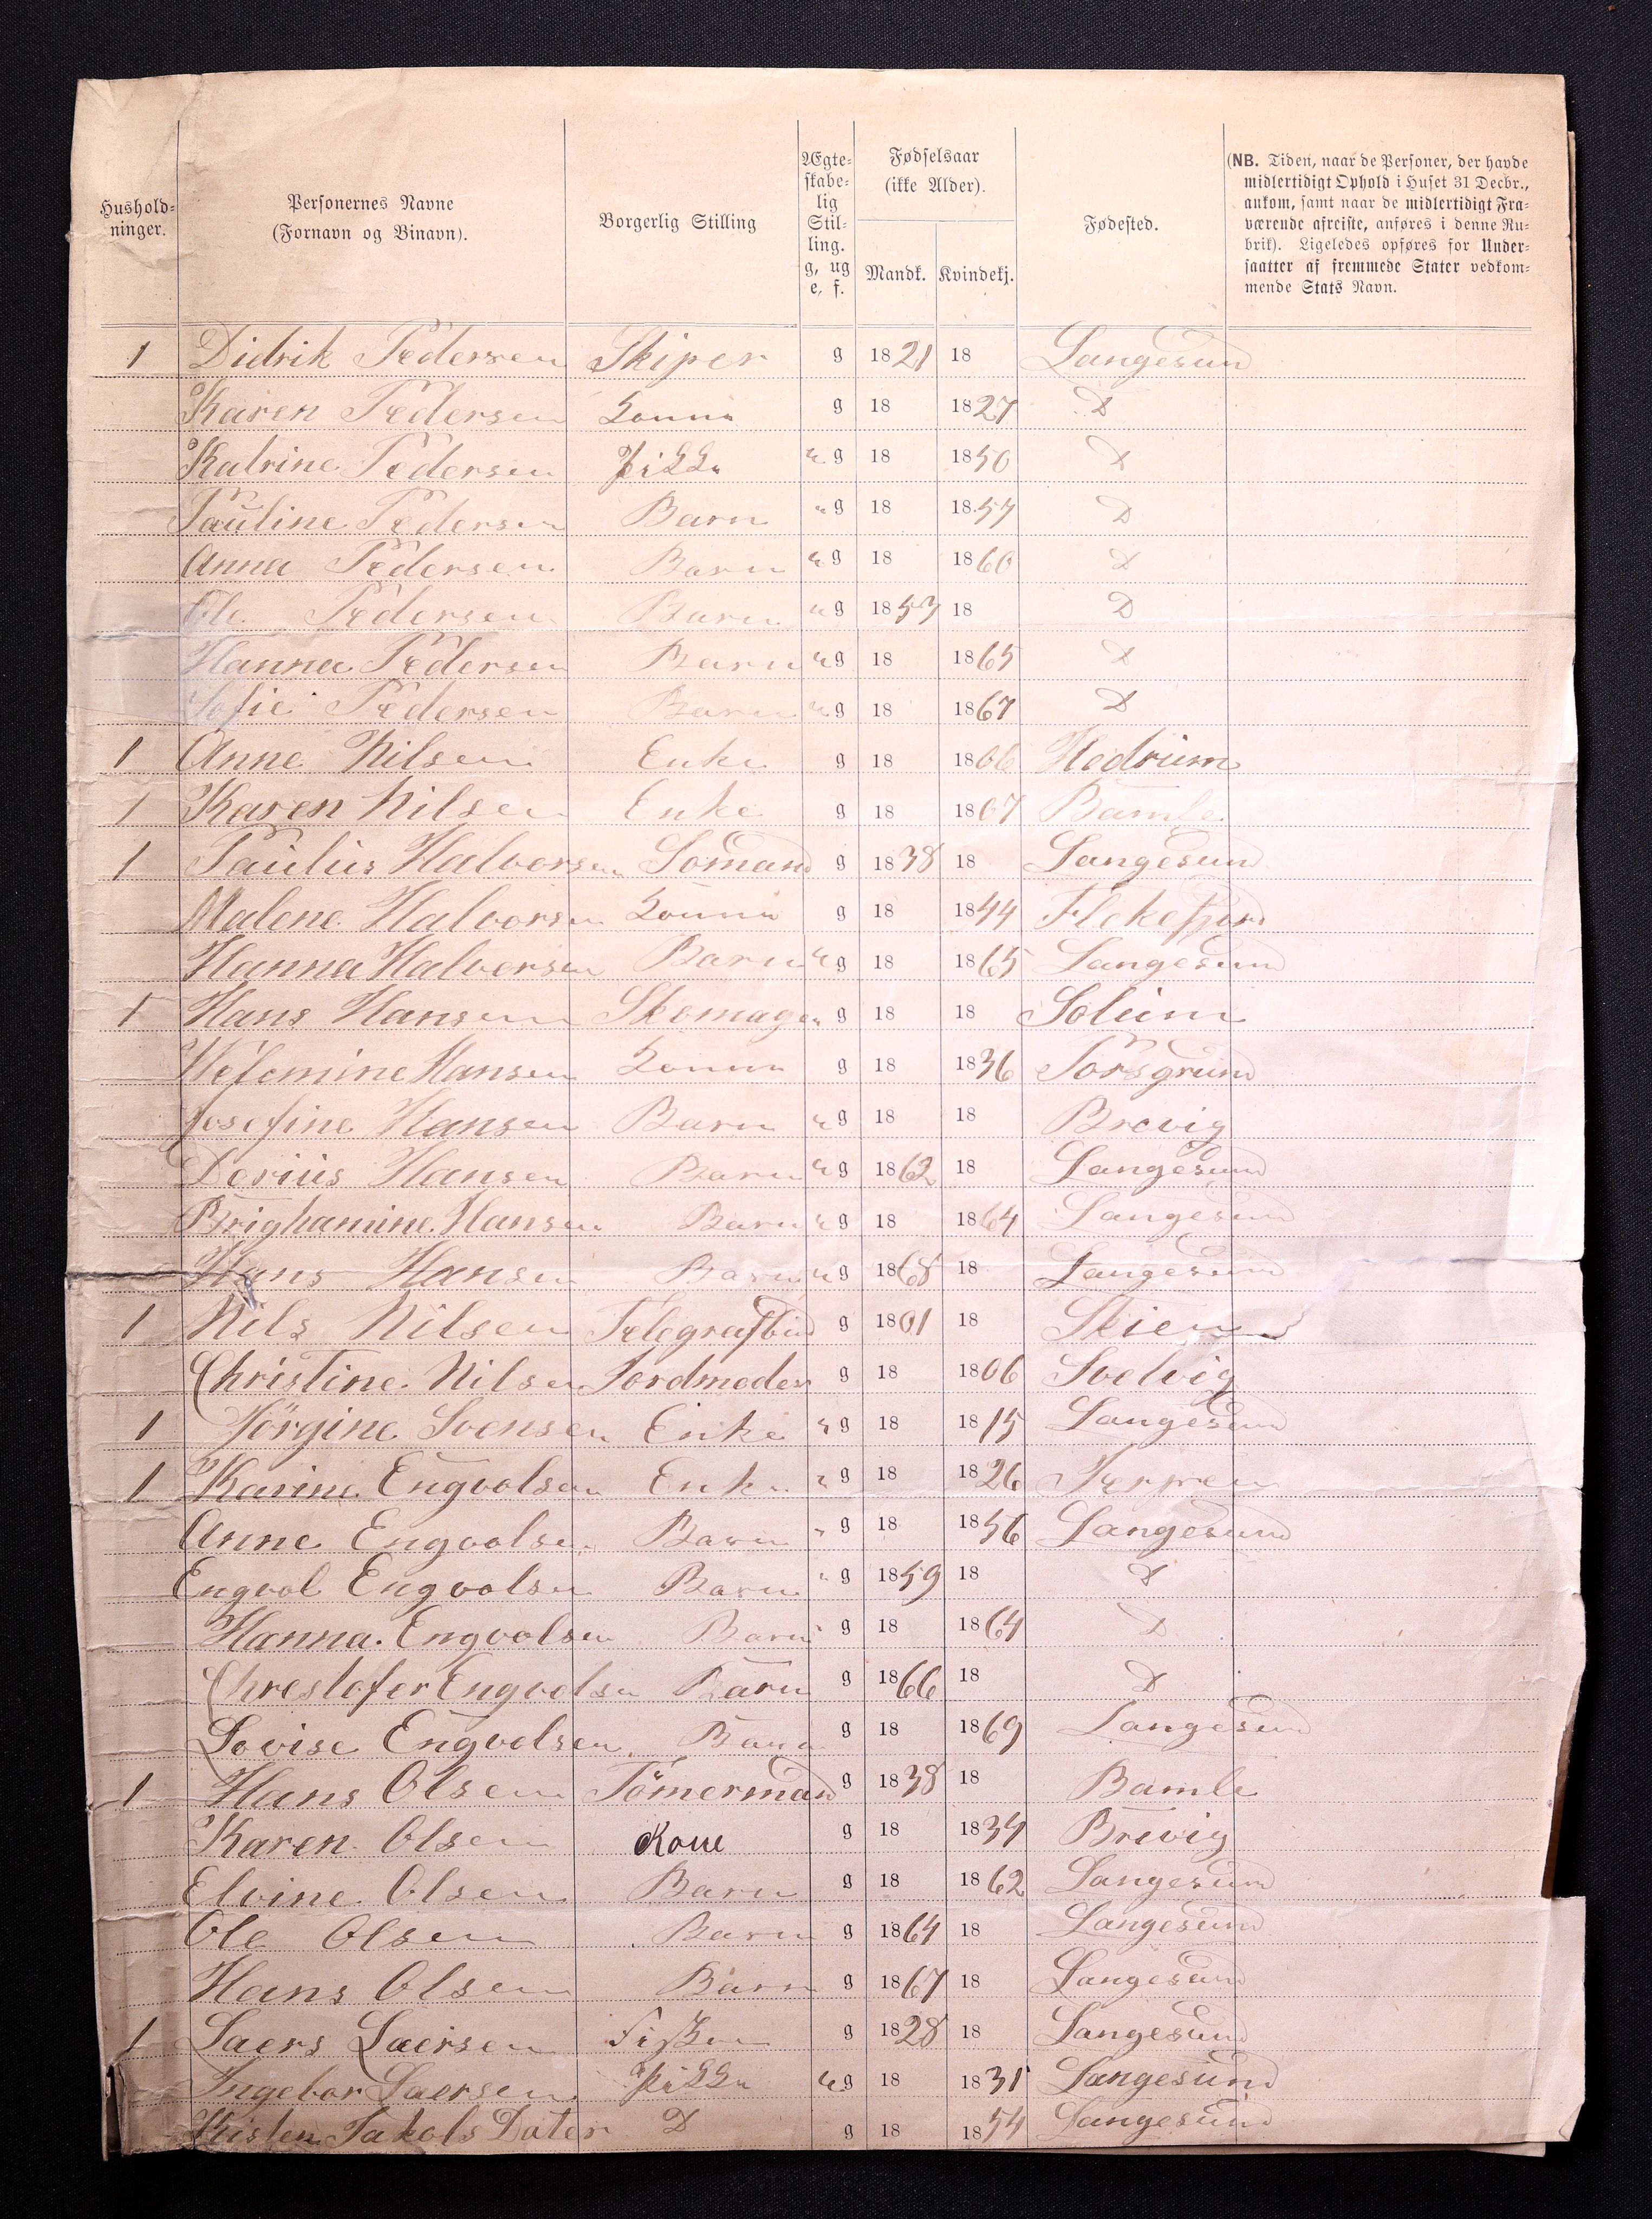 Hushold-
ninger.
Personernes Navne
(Fornavn og Binavn).
Borgerlig Stilling
Ægte-
skabe-
lig
Stil-
ling.
g, ug
e, f.
Fødselsaar
(ikke Alder).
Mandk.
Kvindekj.
Fødested.
(NB. Tiden, naar de Personer, der havde
midlertidigt Ophold i Huset 31 Decbr.,
ankom, samt naar de midlertidigt Fra-
værende afreiste, anføres i denne Ru-
brik). Ligeledes opføres for Under-
saatter af fremmede Stater vedkom-
mende Stats Navn.
1 Didrik Pedersen Skiper g 1821 18 Langesund
Karen Pedersen g 18 1827 D
Katrine Pedersen ug 18 1850 D
Pauline Pedersen Barn ug 18 1857 D
Anna Pedersen Barn ug 18 1860 D
Ole Pedersen Barn ug 1853 18 D
Hanna Pedersen Barn ug 18 1865 D
Sofie Pedersen Barn ug 18 1867 D
1 Anne Nilsen Enke g 18 1806 Hedrum
1 Karen Nilsen Enke g 18 1807 Bamle
1 Paulus Halvorsen Somand g 1838 18 Langesund
Malene Halvorsen g 18 1844 Flekefjord
Hanna Halvorsen Barn ug 18 1865 Langesund
1 Hans Hansen Skomager g 18 18 Solum
Hansen g 18 1836 Porsgrund
Josefine Hansen Barn ug 18 18 Brevig
Derius Hansen Barn ug 1862 18 Langesund
Brighamine Hansen Barn ug 18 1864 Langesund
Hans Hansen Barn ug 1868 18 Langesund
1 Nils Nilsen Telegrafbud g 1801 18 Skien
Christine Nilsen Jordmoder g 18 1806 Svelvig
1 Jörgine Svensen Enke g 18 1815 Langesund
1 Karine Engvolsen Enke g 18 1826 Jerpen
Anne Engvolsen Barn g 18 1856 Langesund
Engvol Engvolsen Barn g 1859 18 D
Hanna Engvolsen Barn g 18 1864 D
Chrestofer Engvolsen Barn g 1866 18 D
Lovise Engvolsen Barn g 18 1869 Langesund
1 Hans Olsen Tömermand g 1838 18 Bamle
Karen Olsen Kone g 18 1834 Brevig
Elvine Olsen Barn g 18 1862 Langesund
Ole Olsen Barn g 1864 18 Langesund
Hans Olsen Barn g 1867 18 Langesund
1 Laers Laersen g 1828 18 Langesund
Ingebor Laersen ug 18 1831 Langesund
Kisten Jakobs Dater D g 18 1854 Langesund